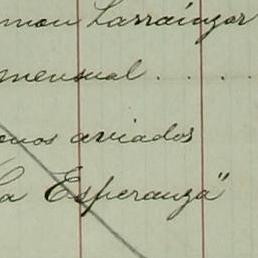 mon Larrainzar
mensual . . . .
onos aviados
La Esperanza"